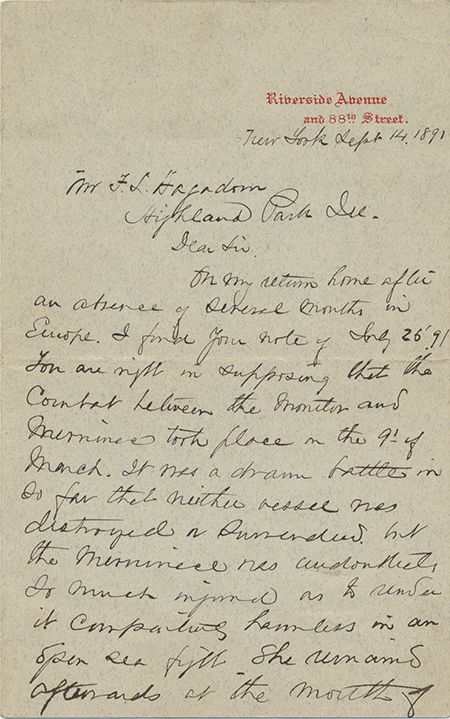 Riverside Avenue
and 88th Street.
New York Sept 14. 1891
Mr F. L. Hagadorn
Highland Park Ill.
Dear Sir.
On my return home after
an absence of several months in
Europe. I find your note of July 26' 91
You are right in supposing that the
Combat between the Monitor and
Merrimec took place on the 9' of
March. It was a drawn battle in
so far that neither vessel was
destroyed or surrendered. but
the Merrimece was undoubtedly
so much injured as to render
it comparatively harmless in an
open sea fight. She remained
afterwards at the mouth of